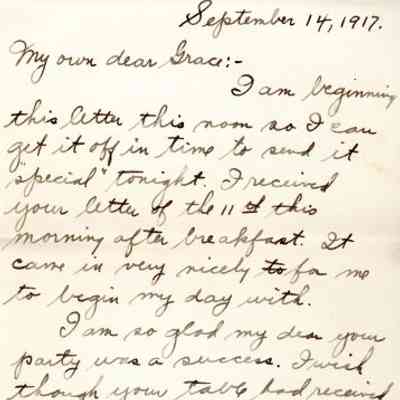 September 14, 1917.
My own dear Grace:-
I am beginning
this letter this noon so I can
get it off in time to send it
"special" tonight. I received
your letter of the 11th this
morning after breakfast. It
came in very nicely to for me
to begin my day with.
I am so glad my dear your
party was a success. I wish
though your table had received